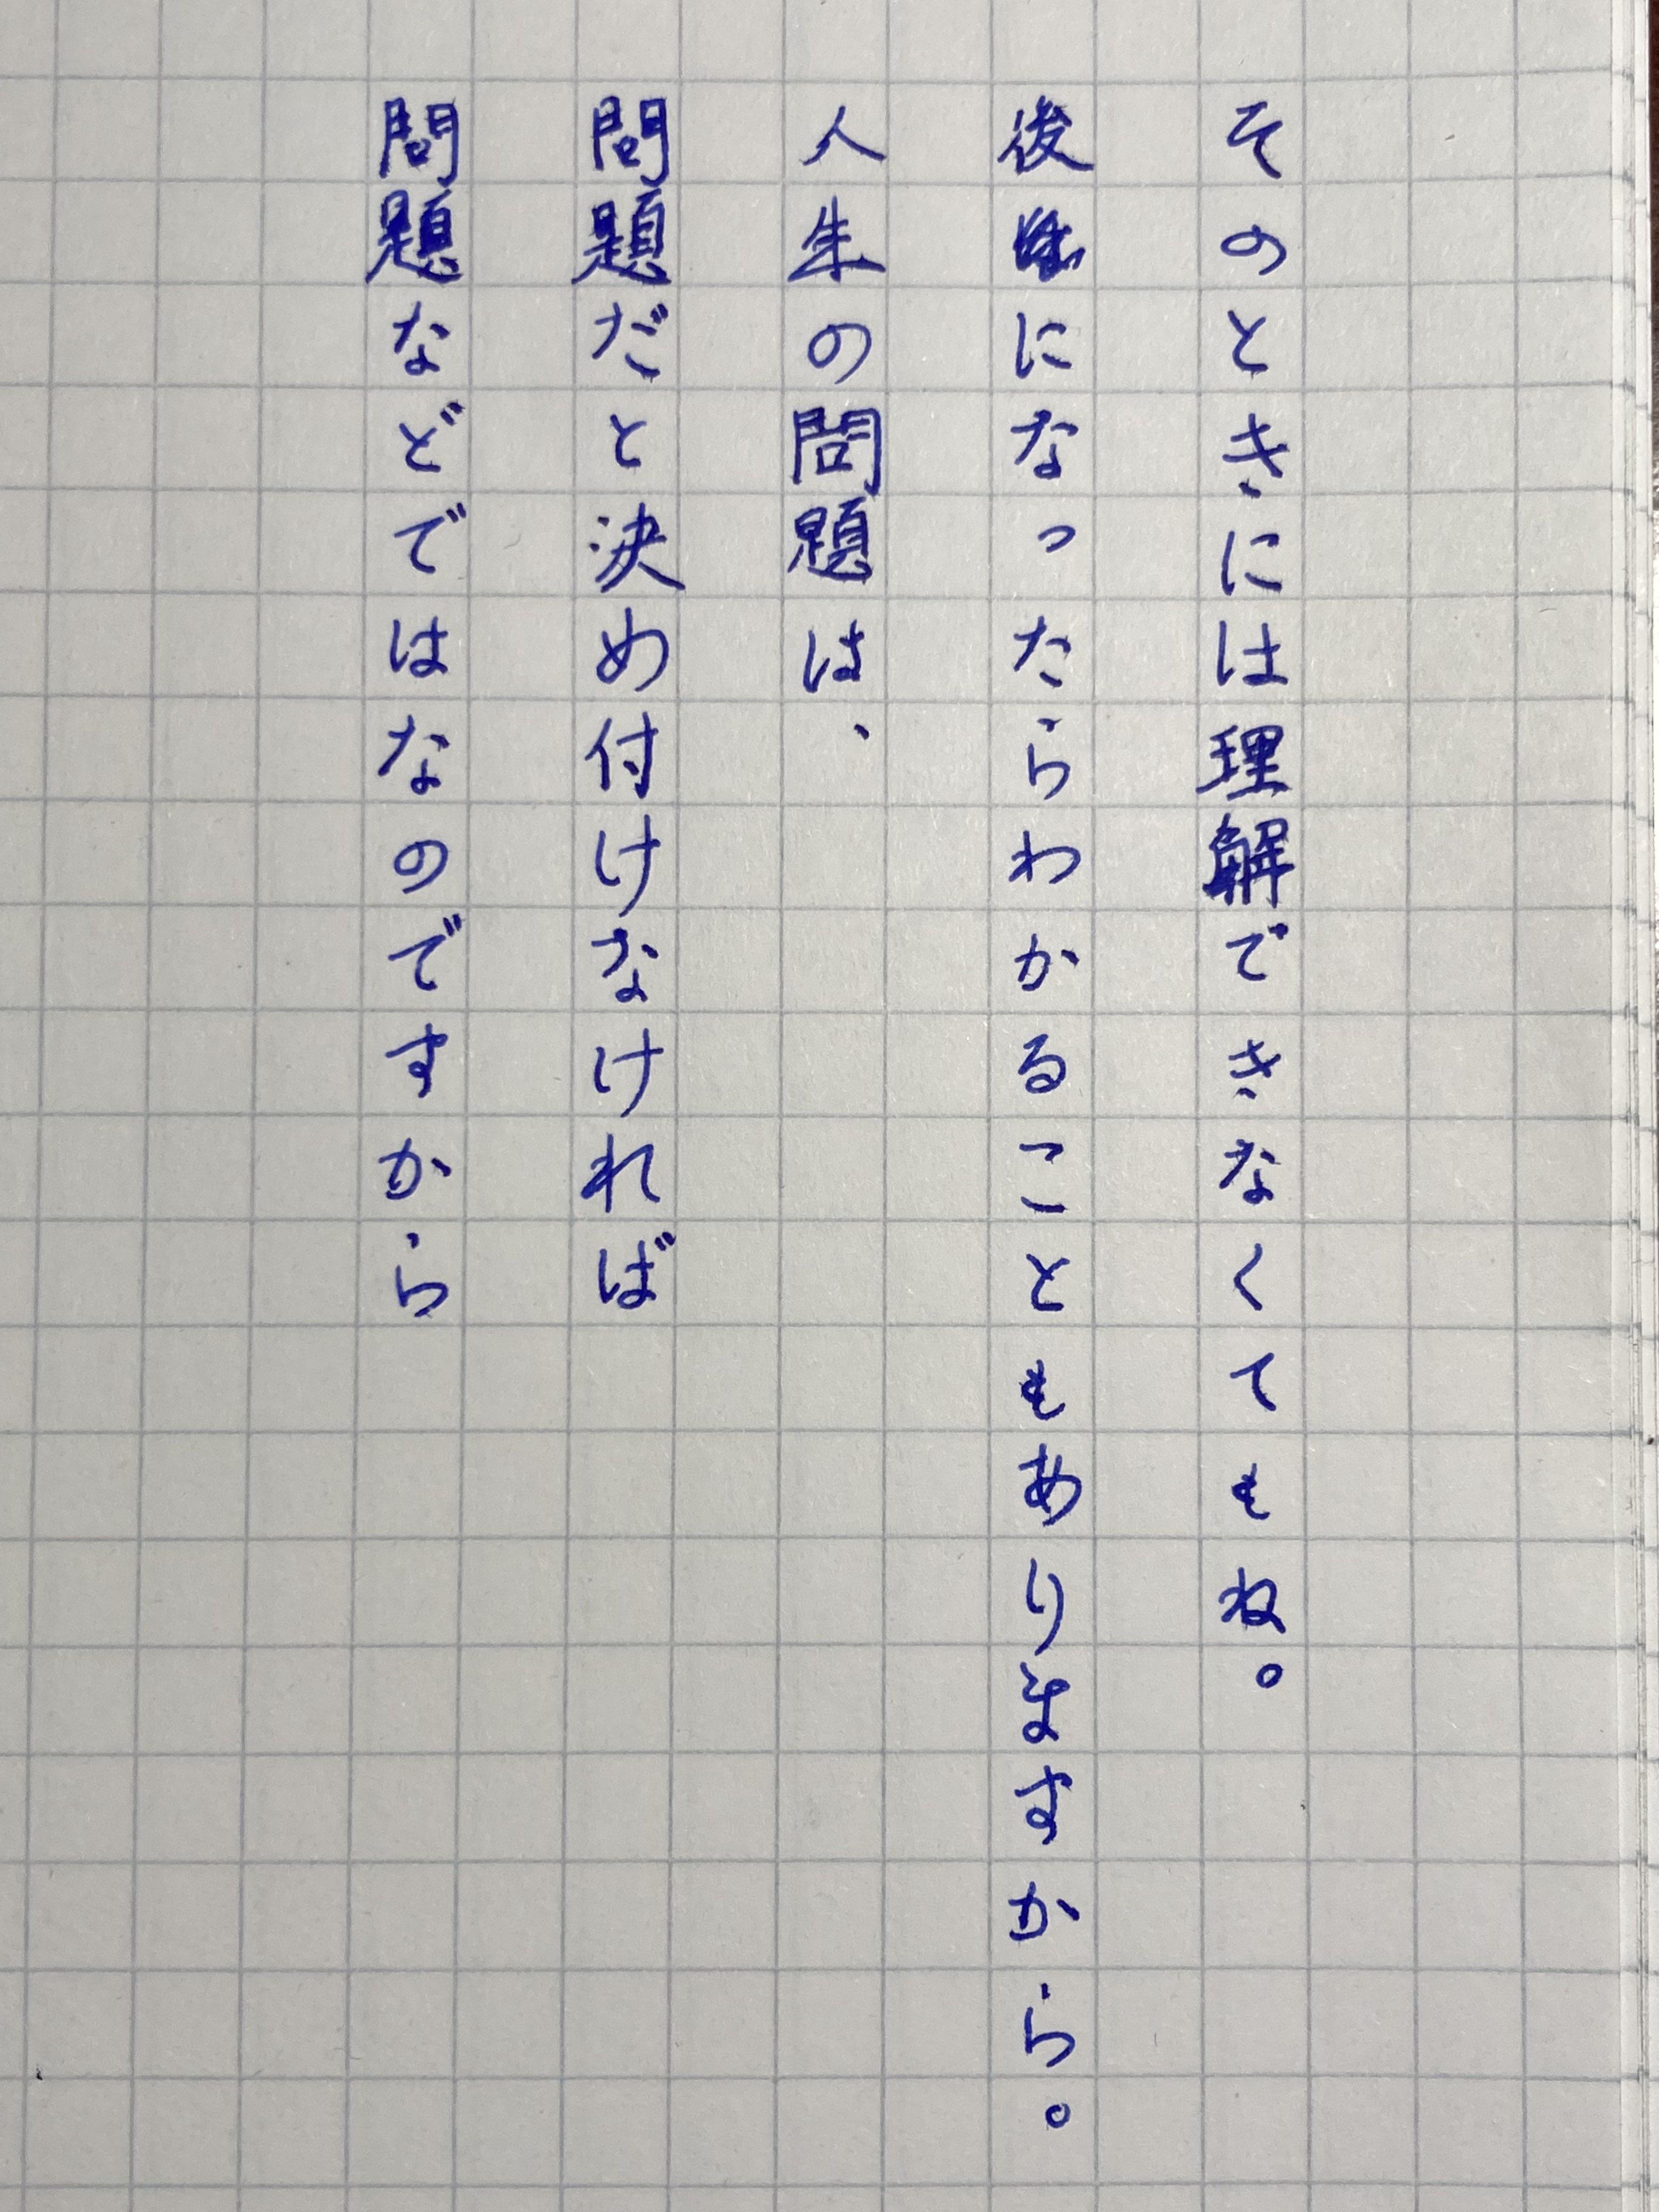 そのときには理解できなくてもね。
後になったらわかることもありますから。
人生の問題は、
問題だと決め付けなければ
問題などではなのですから